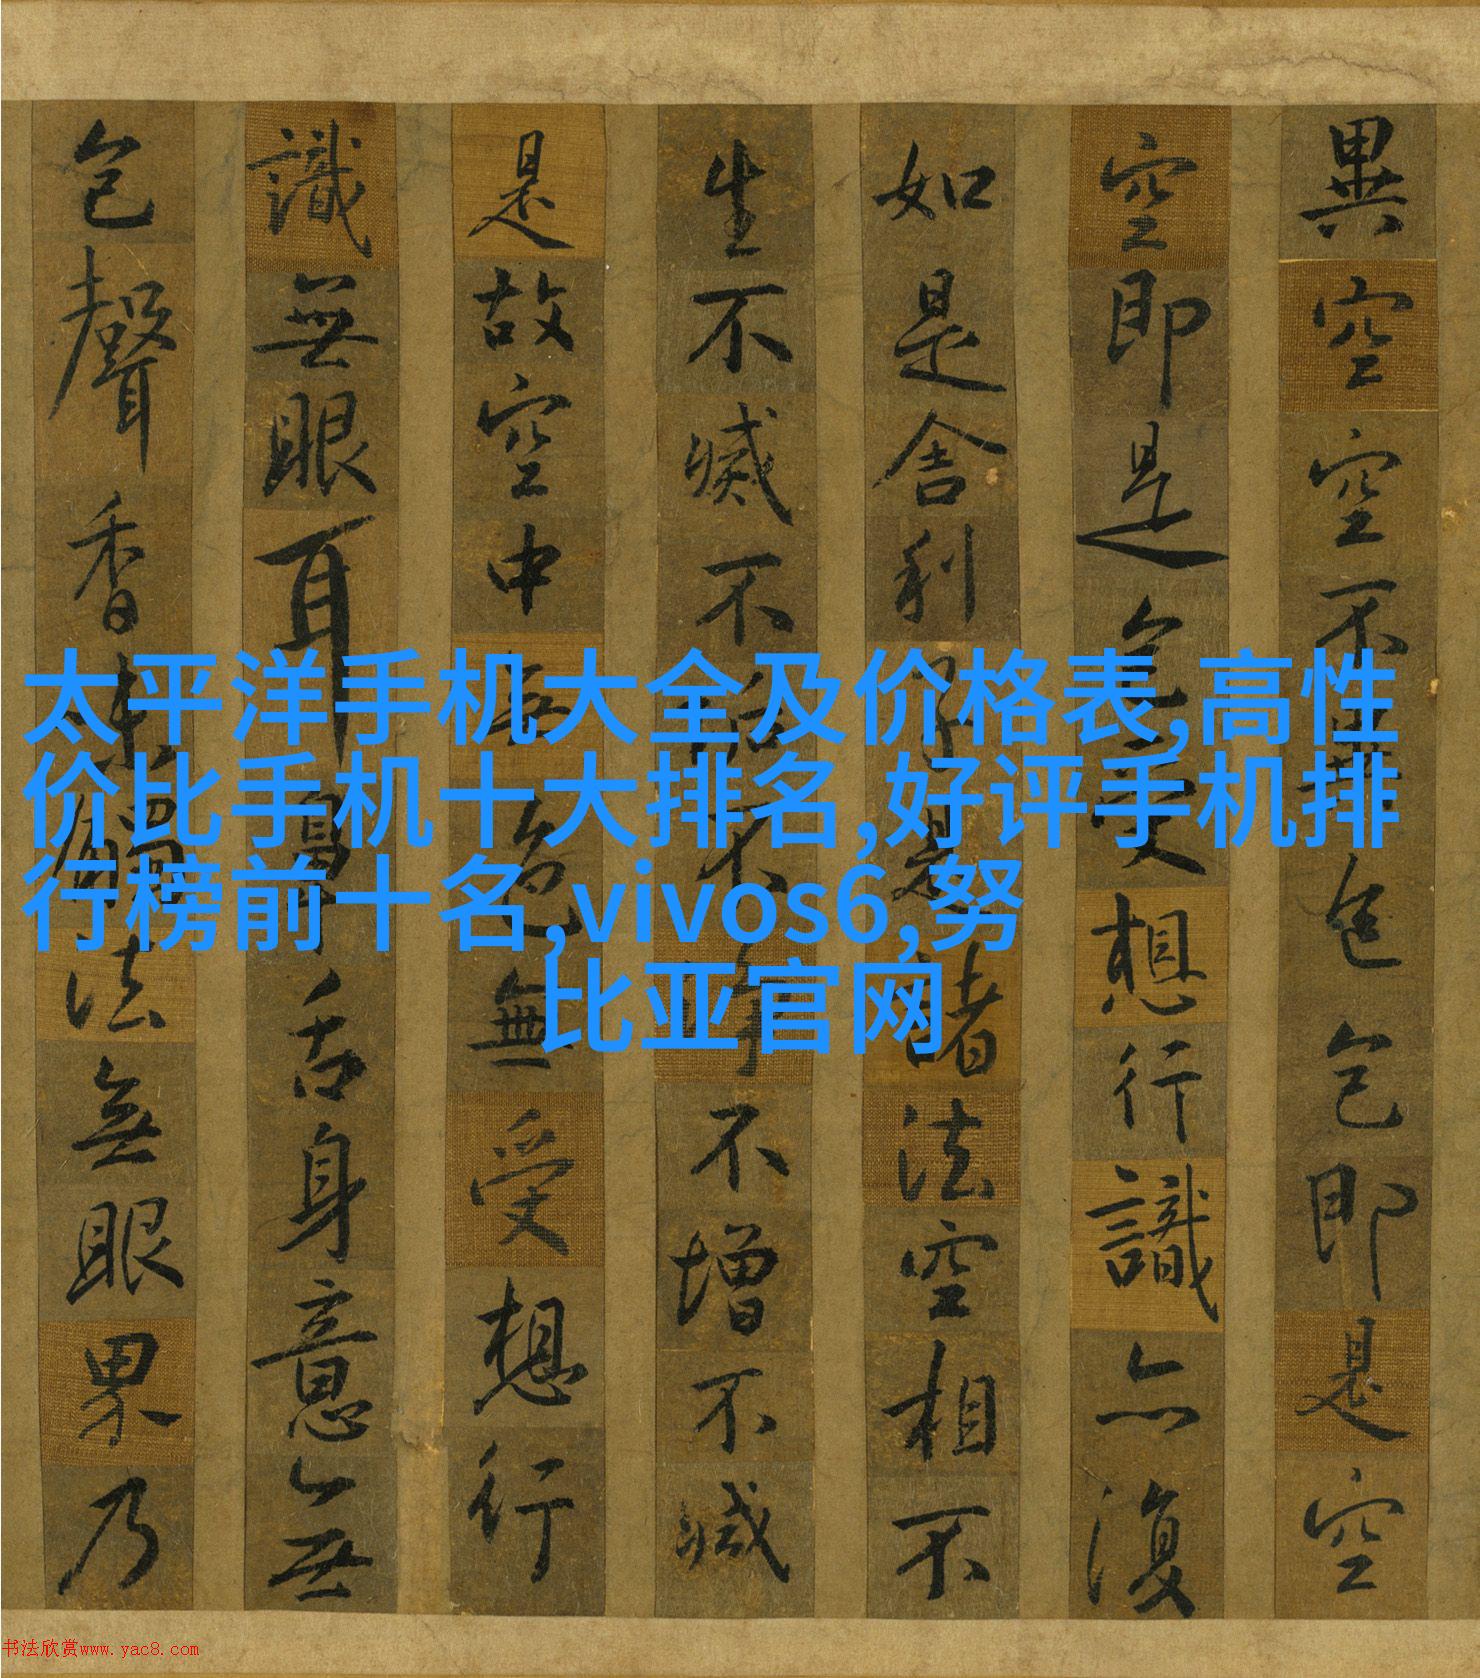 異空空不異色色即是空
空即是色受想行識亦復
如是舍利子是諸法空相不
生不滅不垢不淨不增不減
是故空中無色無受想行
識無眼耳鼻舌身意無
色聲香味觸法無眼界乃
太平洋手机大全及价格表,高性
价比手机十大排名,好评手机排
行榜前十名,vivos6,努
比亚官网
书法欣赏www.yac8.com